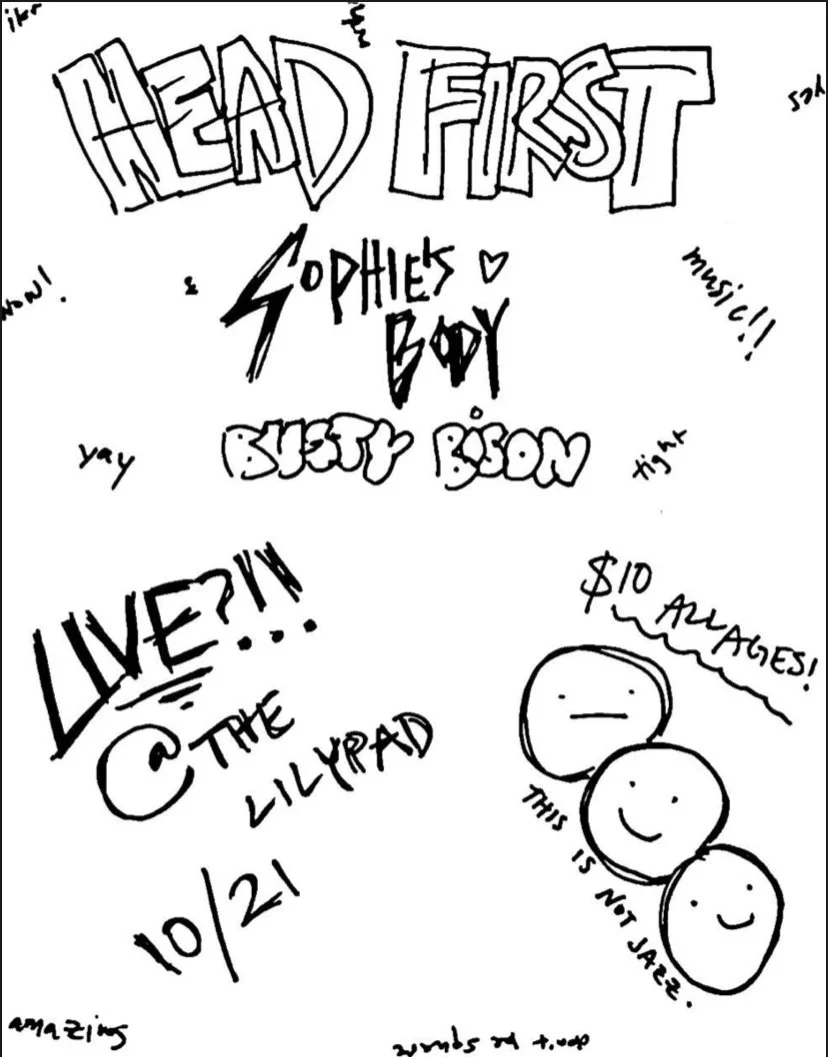 ikr
HEAD FIRST
yes
now!
&
SOPHIE'S
BODY
music!!
yay
BUSTY BISON
tight
LIVE?!!!
@ THE
LILYPAD
10/21
$10 ALL AGES!
THIS IS NOT JAZZ.
amazing
don't be square